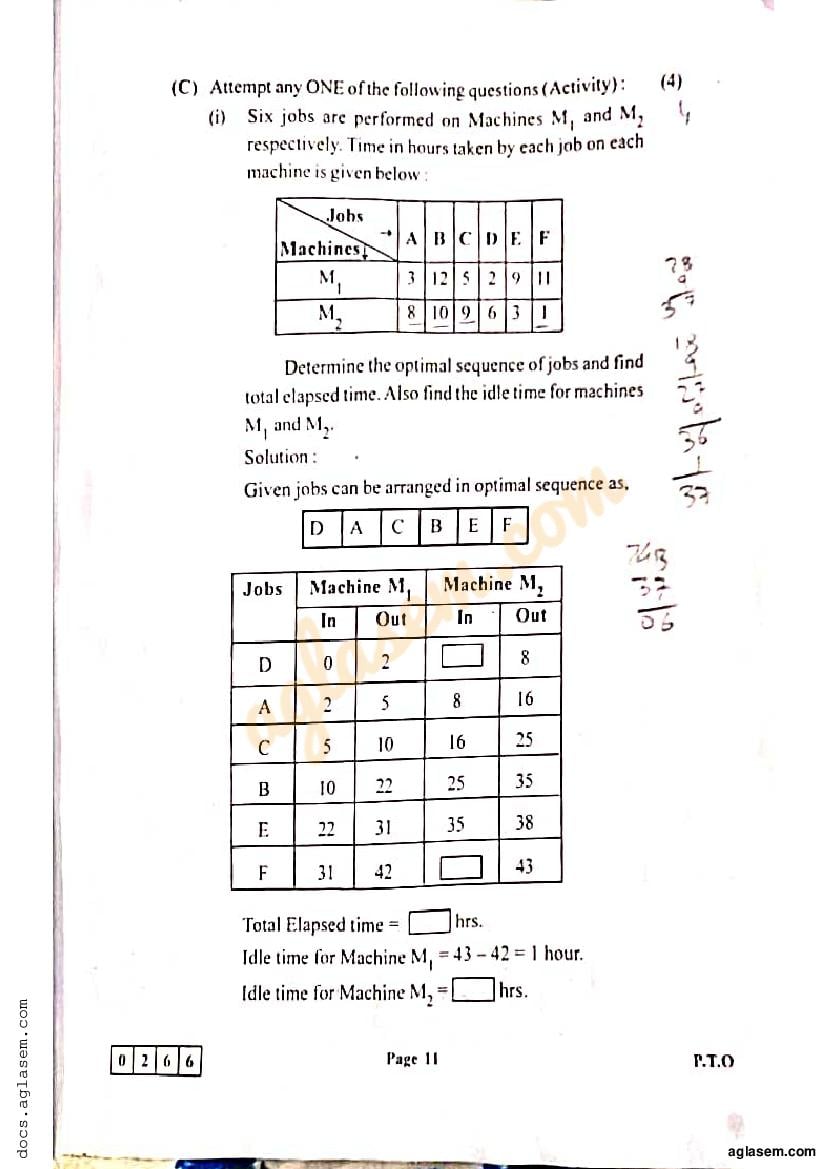 (C) Attempt any ONE of the following questions (Activity) : (4)
(i) Six jobs are performed on Machines M1 and M2
respectively. Time in hours taken by each job on each
machine is given below :
Jobs → A B C D E F
Machines↓
M1 3 12 5 2 9 11
M2 8 10 9 6 3 1
Determine the optimal sequence of jobs and find
total elapsed time. Also find the idle time for machines
M1 and M2.
Solution :
Given jobs can be arranged in optimal sequence as,
D A C B E F
Jobs Machine M1 Machine M2
In Out In Out
D 0 2 8
A 2 5 8 16
C 5 10 16 25
B 10 22 25 35
E 22 31 35 38
F 31 42 43
Total Elapsed time = hrs.
Idle time for Machine M1 = 43 – 42 = 1 hour.
Idle time for Machine M2 = hrs.
27
36
1
37
37
06
0 2 6 6 Page 11 P.T.O
aglasem.com
docs.aglasem.com
aglasem.com